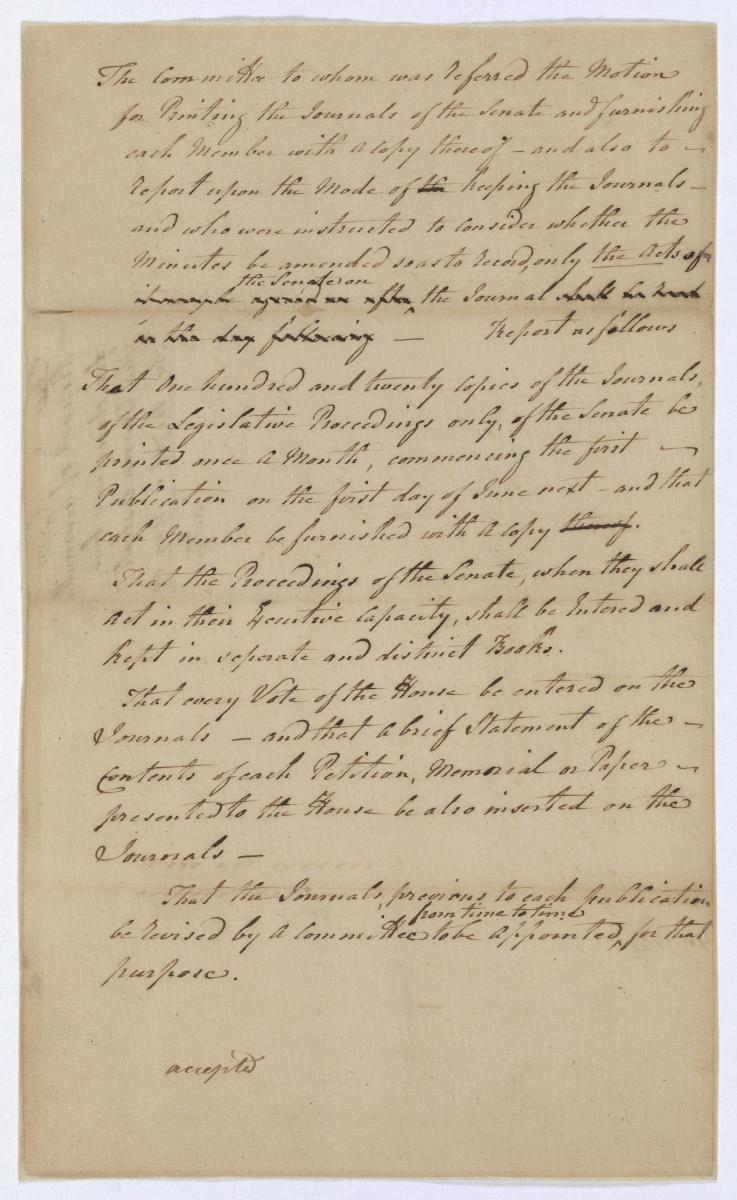 The Committee to whom was referred the Motion
for Printing the Journals of the Senate and furnishing
each Member with a Copy thereof – and also to –
report upon the Mode of the keeping the Journals –
and who were instructed to consider whether the
Minutes be amended so as to record, only the Acts of
the Senate on
after the Journal shall be
in the day following — Report as follows
That One hundred and twenty Copies of the Journals,
of the Legislative Proceedings only, of the Senate be
printed once a Month, commencing the first –
Publication on the first day of June next – and that
each Member be furnished with a Copy thereof.
That the Proceedings of the Senate, when they shall
Act in their Executive Capacity, shall be Entered and
kept in seperate and distinct Books.
That every Vote of the House be entered on the
Journals – and that a brief Statement of the –
Contents of each Petition, Memorial or Paper –
presented to the House be also inserted on the
Journals –
That the Journals, previous to each publication
from time to time
be revised by a Committee to be appointed, for that
purpose.
accepted